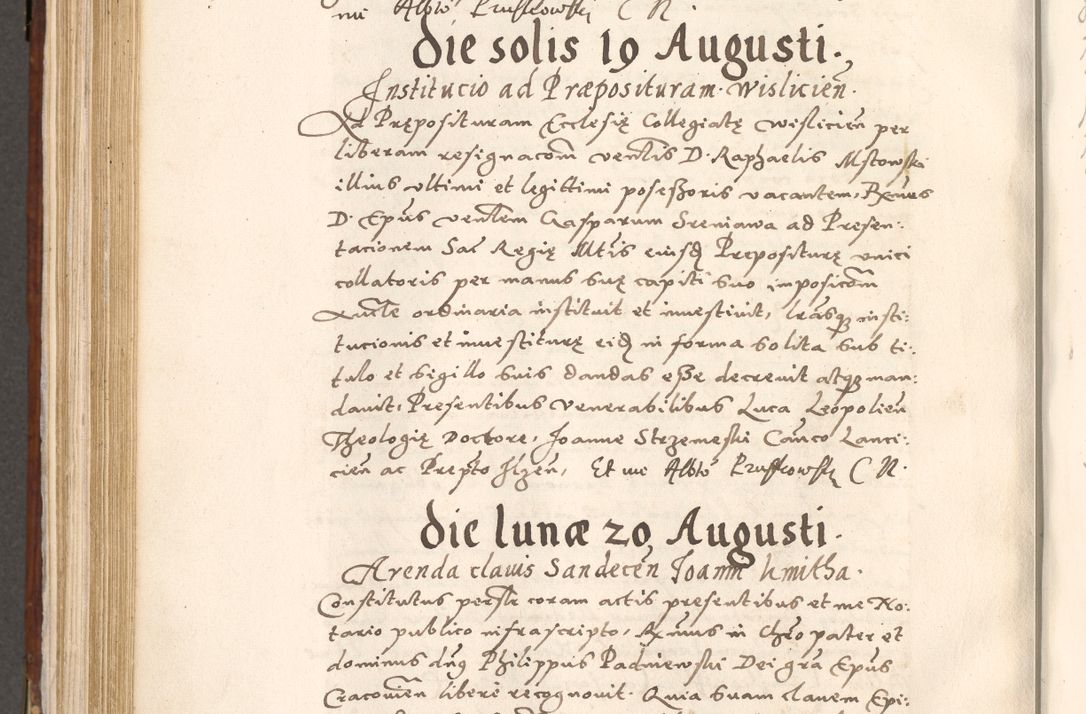 me Albto Pruskowsky C N.
Die solis 19 Augusti.
Institucio ad Præposituram. Wislicien̄.
Ad Pręposituram Ecclesię Collegiatę Wislicien̄ per
liberam resignacom̄ ven̄lis D. Raphaelis Mstowski
illius vltimi et legittimi poseßoris vacantem, Rx̄mus
D. Ep̄us ven̄lem Gasparum Sreniawa ad Presen:
tacionem Sac̄ Regię Mt̄is eiusd̄ Prepositurę vnici
collatoris per manus suę capiti suo imposicom̄
Auc̄te ordinaria instituit et inuestiuit, lr̄asq̄ insti:
tucionis et inuestiturę eid̄ in forma solita sub ti:
tulo et sigillo suis dandas eße decreuit atq̄ man:
dauit, Presentibus Venerabilibus Luca Leopolien̄
Theologię Doctore, Joanne Strzemeski Can̄co Lanci:
cien̄ ac Prep̄to Ilzen̄, Et me Albto Pruskowsky C N.
Die lunæ 20 Augusti.
Arenda clauis Sandecen̄ Joanni Kmitha.
Constitutus pers̄lr coram actis presentibus et me No:
tario publico infrascripto, Rx̄mus in Chr̄o pater et
dominus dn̄s Philippus Padniewski Dei gr̄a Ep̄us
Cracouien̄ liberè recognouit. Quia suam clauem Epi: